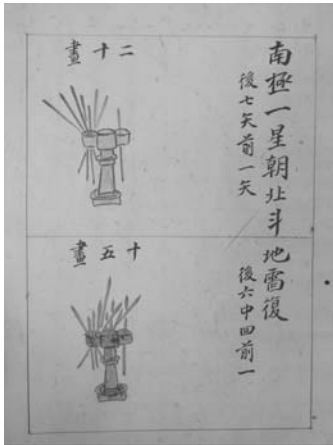 南極一星朝北斗
後七矢前一矢
二十畫
地雷復
後六中四前一
十五畫